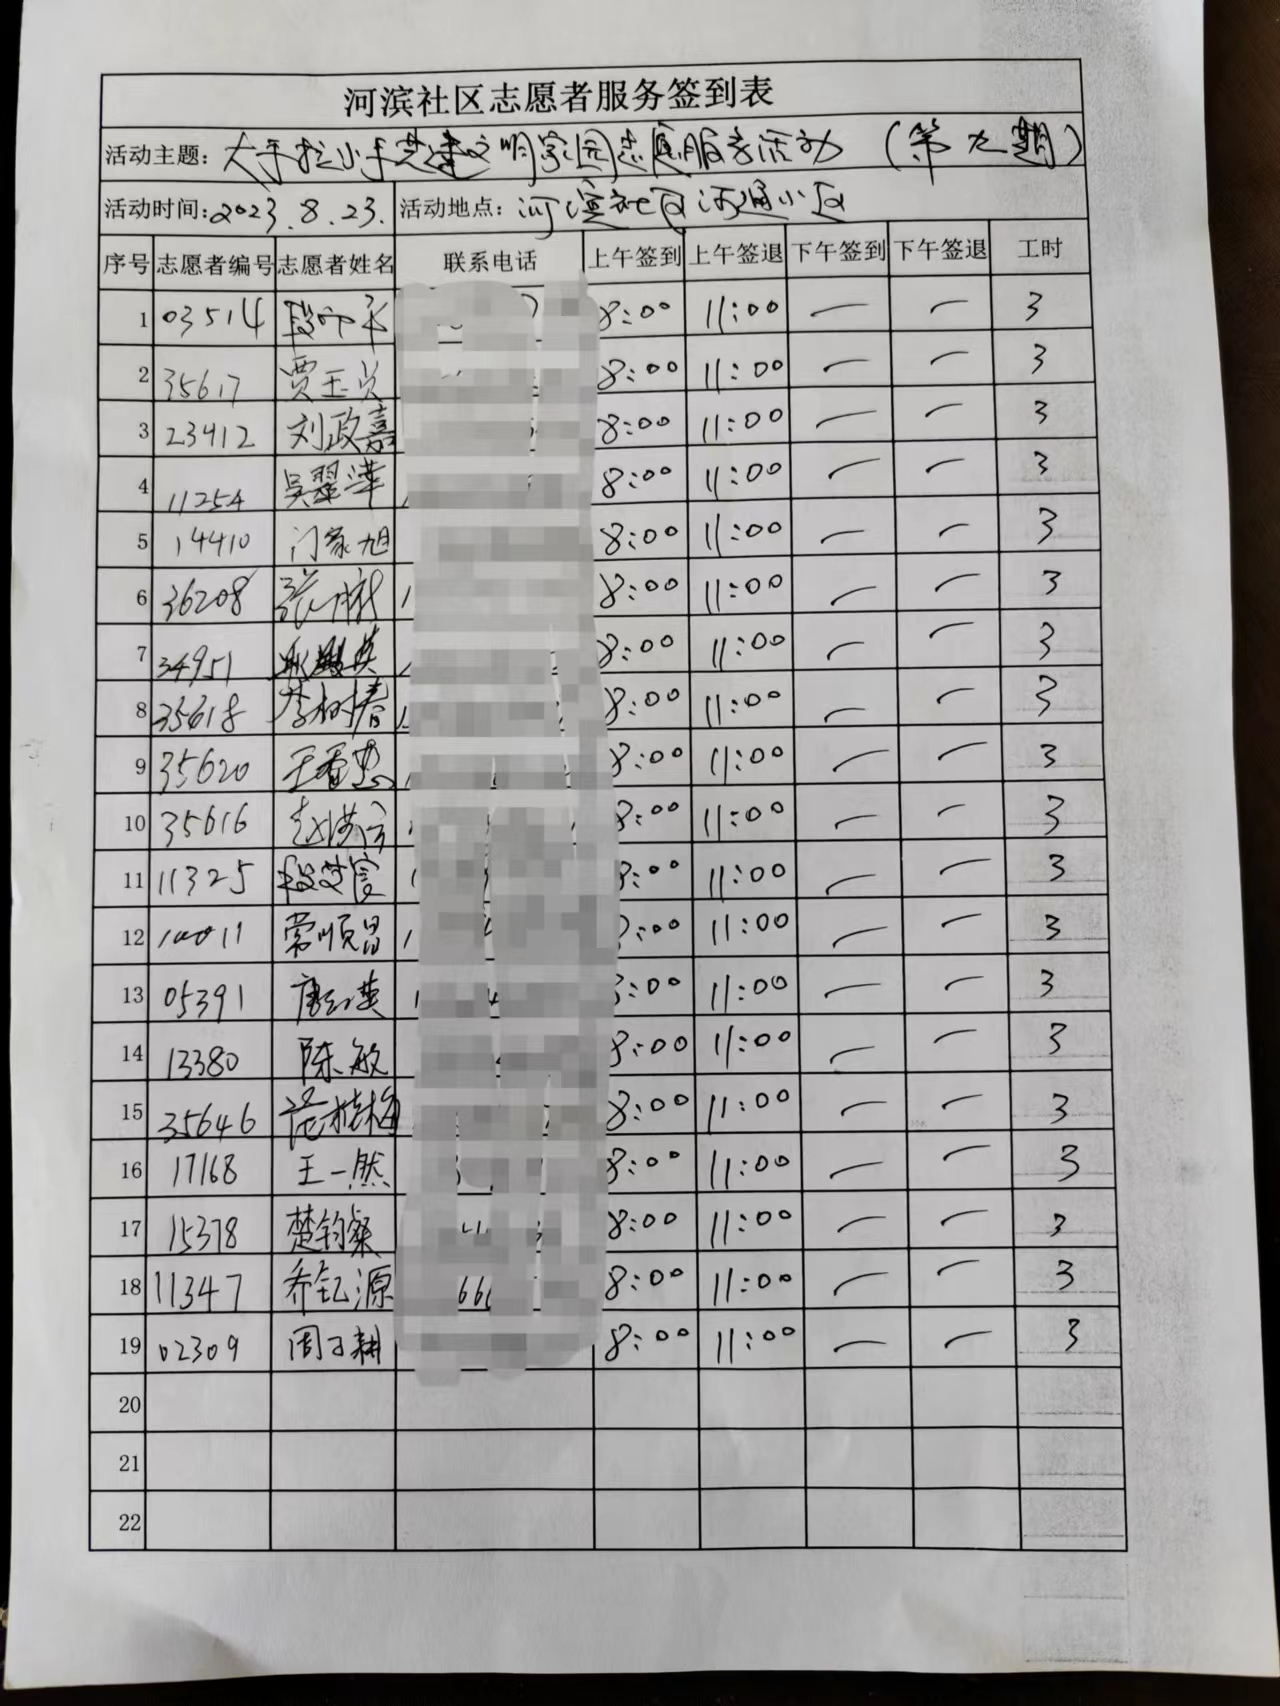 河滨社区志愿者服务签到表
活动主题：大手拉小手共建文明家园志愿服务活动（第九期）
活动时间：2023.8.23. 活动地点：河滨社区河通小区
序号 志愿者编号 志愿者姓名 联系电话 上午签到 上午签退 下午签到 下午签退 工时
1 03514 8:00 11:00 — — 3
2 35617 贾玉 8:00 11:00 — — 3
3 23412 刘政嘉 8:00 11:00 — — 3
4 11254 吴翠萍 8:00 11:00 — — 3
5 14410 门家旭 8:00 11:00 — — 3
6 36208 张 8:00 11:00 — — 3
7 34951 8:00 11:00 — — 3
8 35618 李树春 8:00 11:00 — — 3
9 35620 王香 8:00 11:00 — — 3
10 35616 赵 8:00 11:00 — — 3
11 11325 段 8:00 11:00 — — 3
12 常顺昌 :00 11:00 — — 3
13 05391 唐红英 8:00 11:00 — — 3
14 13380 陈敏 8:00 11:00 — — 3
15 35646 范桂梅 8:00 11:00 — — 3
16 17168 王一然 8:00 11:00 — — 3
17 15378 楚钧粲 8:00 11:00 — — 3
18 11347 乔钇源 66 8:00 11:00 — — 3
19 02309 周子耕 8:00 11:00 — — 3
20
21
22